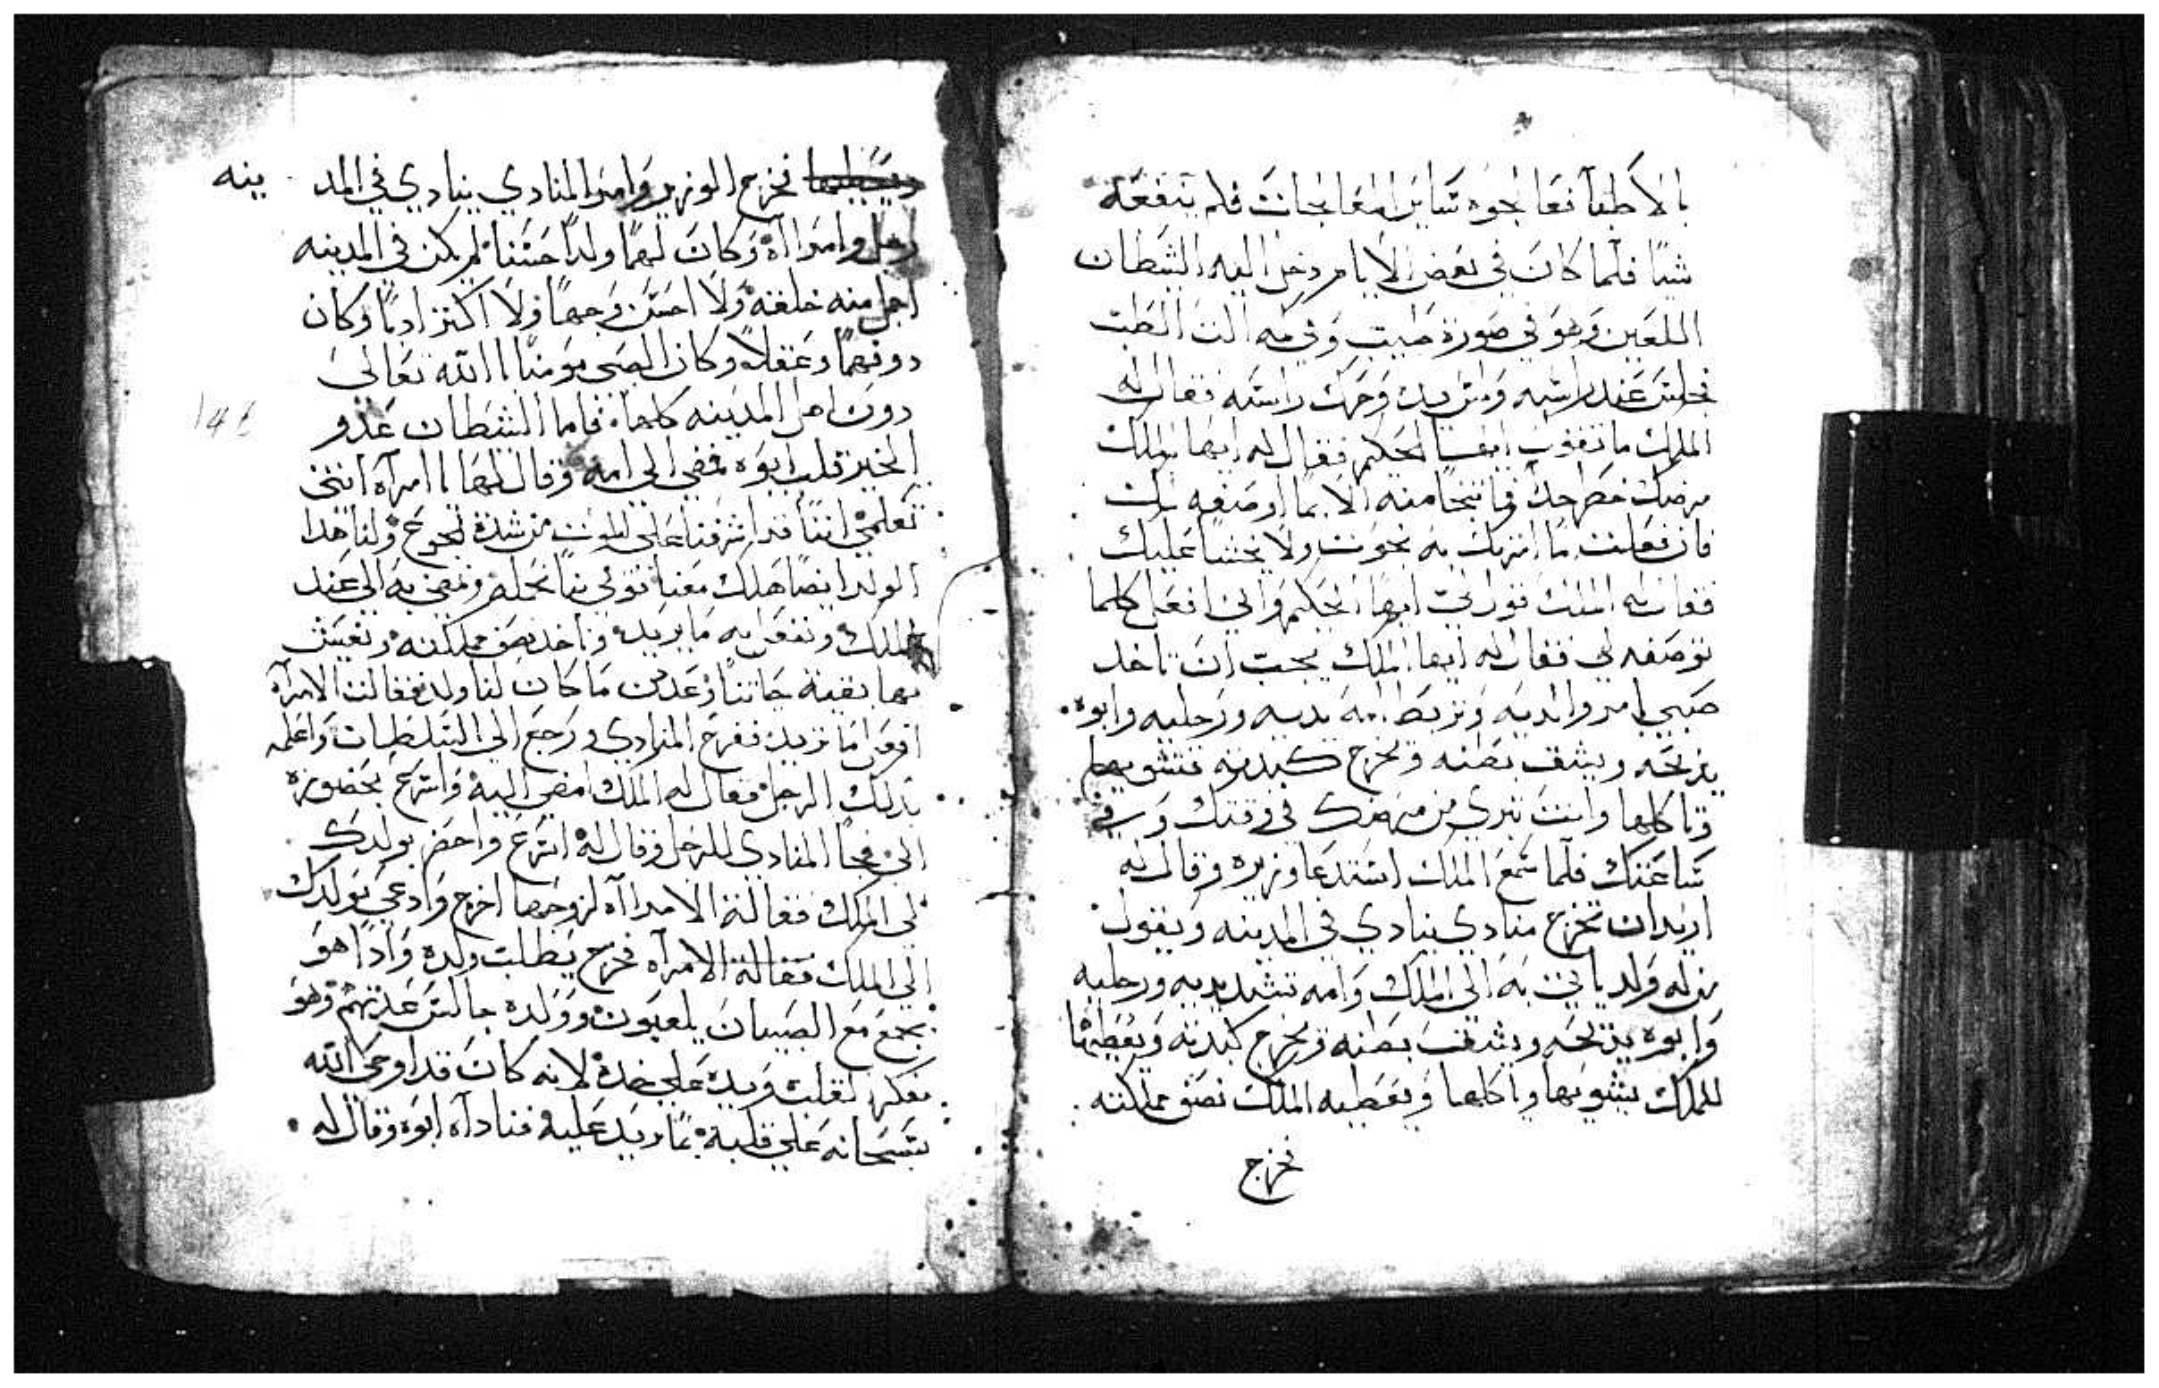 بالاطبآ فعالجوه بساير المعالجات فلم ينفعه
شيًا فلما كان في بعض الايام دخل اليه الشيطان
الملعين وهو في صورة طبيب وفي كمه الت الطب
فجلس عند راسه ومس يده وحرك راسه فقال له
الملك ما تقول ايها الحكيم فقال له ايها الملك
مرضك خطر جدًا فما تنجا منه الا بما اوصفه لك
فان فعلت ما امرتك به نجوت ولا نخشا عليك
فقال له الملك قول لي ايها الحكيم وانا افعل كلما
توصفه لي فقال له ايها الملك يجب ان تاخد
صبي من والديه وتربط امه يديه ورجليه وابوه
يدبحه ويشق بطنه وتخرج كبدته تشويها
وتاكلها وانت تبري من مرضك في وقتك وفي
ساعتك فلما سمع الملك استدعا وزيره وقال له
اريد ان تخرج منادي ينادي في المدينه ويقول
من له ولد ياتي به الى الملك وامه تشد يديه ورجليه
وابوه يدبحه ويشق بطنه ويخرج كبدته ويعطيها
للملك يشويها وياكلها ويعطيه الملك نصف مملكته
فخرج
فخرج الوزير وامر المنادي ينادي في المدينه
رجل وامراآه وكان لهما ولدًا حسنًا لم يكن في المدينه
اجمل منه خلقه ولا احسن وجهًا ولا اكثر ادبًا وكان
دو فهمًا وعقلًا وكان الصبي مومنًا باالله تعالى
دون اهل المدينه كلها فاما الشيطان عدو
الخير قلب ابوه فمضى الى امه وقال لها يا امراه انتي
تعلمي اننا قد اشرفنا على الموت من شدة الجوع ولنا هدا
الولد ايضًا هلك معنا قومي بنا نحمله ونمضي به الى عند
الملك ونفعل به ما يريد وناخد نصف مملكته ونعيش
بها بقية حياتنا وعد من ما كان لنا ولد فقالت الامراه
افعل ما تريد ففرح المنادي ورجع الى السلطان واعلمه
بدلك الرجل فقال له الملك امضي اليه واسرع بحضوره
الي فجا المنادي للرجل وقال له اسرع واحضر بولدك
الى الملك فقالة الامراآه لزوجها اخرج وادعي بولدك
الى الملك فقالة الامراه فخرج يطلب ولده وادًا هو
يجمع مع الصبيان يلعبون وولده جالس عندهم وهو
يفكر بقلبه ويده على خده لانه كان قد اوحى الله
سبحانه على قلبه بما يريد عليه فناداه ابوه وقال له